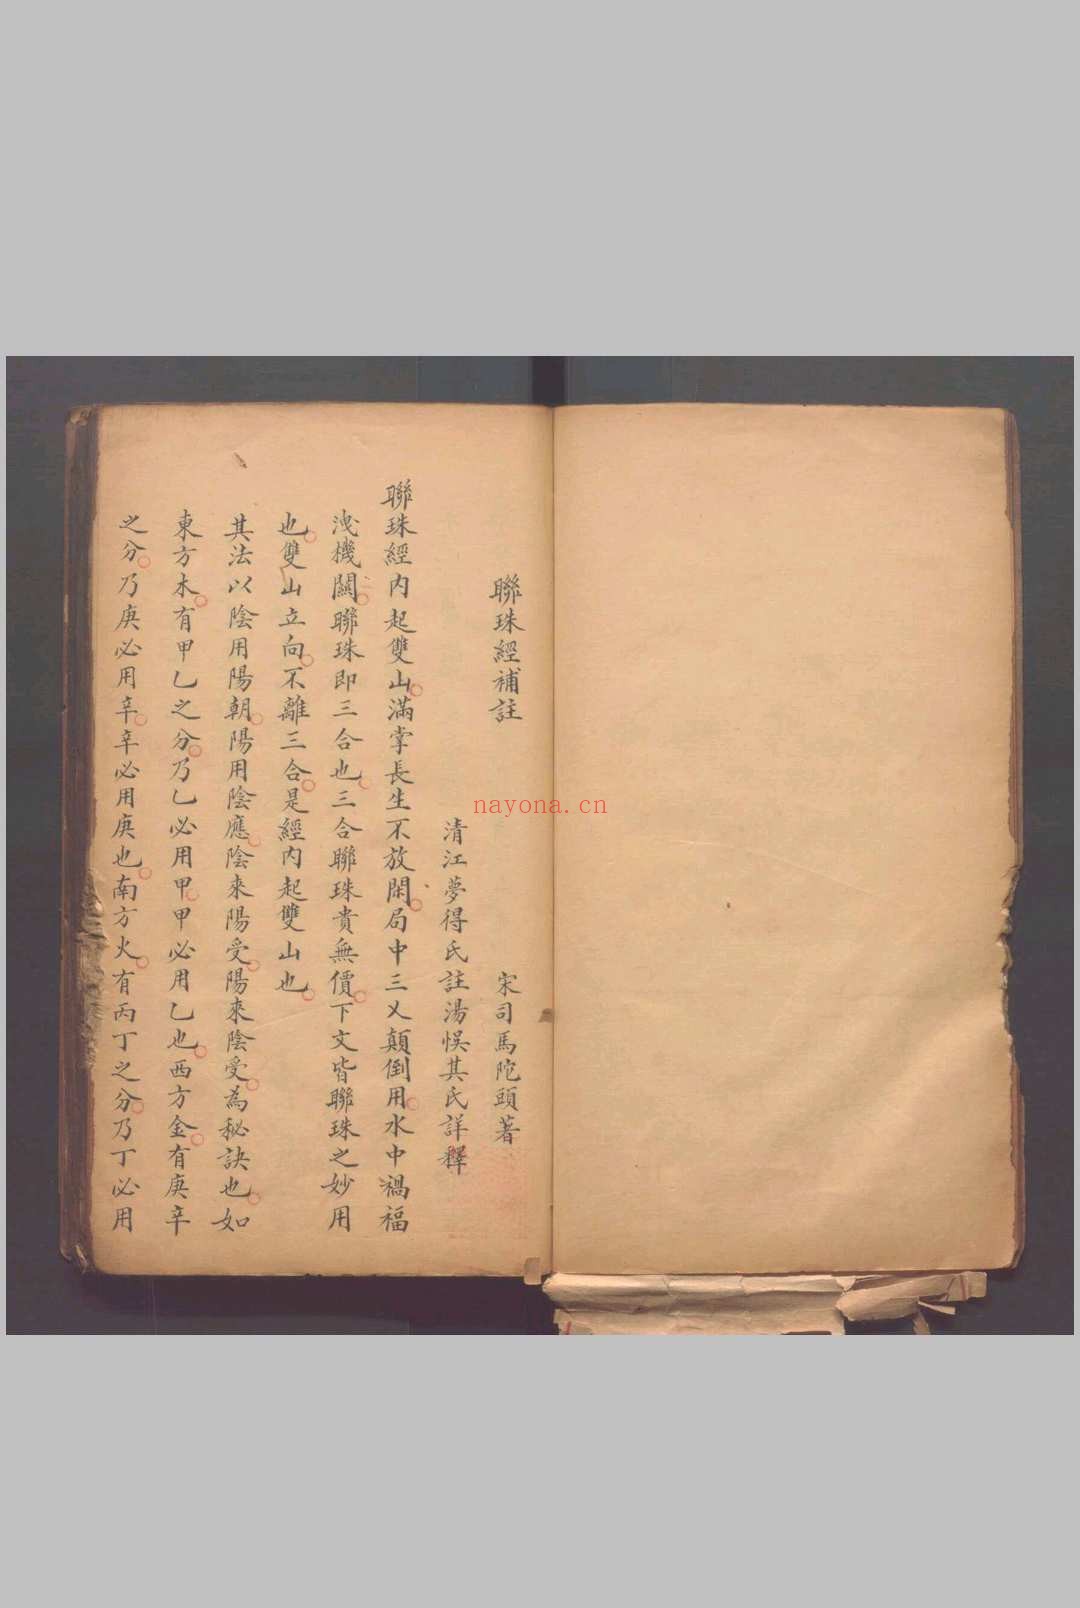 聯珠經補註
宋司馬陀頭著
清江夢得氏註湯悞其氏詳釋
聯珠經内起雙山滿掌長生不放閑局中三乂顛倒用水中禍福
洩機關聯珠即三合也三合聯珠貴無價下文皆聯珠之妙用
也雙山立向不離三合是經内起雙山也
其法以陰用陽朝陽用陰應陰來陽受陽來陰受為秘訣也如
東方木有甲乙之分乃乙必用甲甲必用乙也西方金有庚辛
之分乃庚必用辛辛必用庚也南方火有丙丁之分乃丁必用
nayona.cn